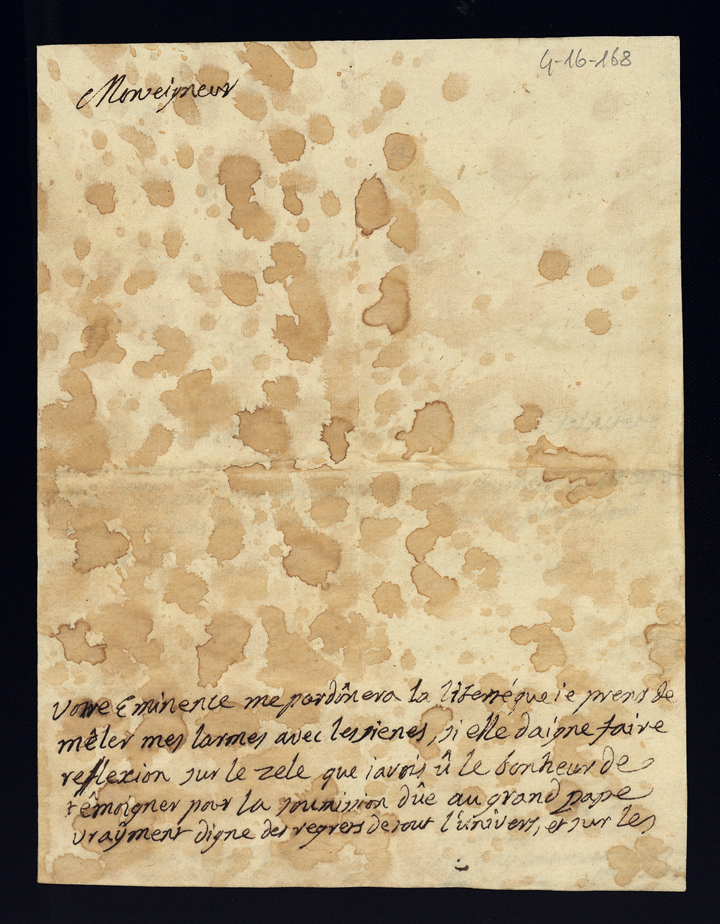 4-16-168
Monseigneur
votre Eminence me pardônera la liberté que ie prens de
mêler mes larmes avec les sienes, si elle daigne faire
reflexion sur le zele que iavois û le bonheur de
têmoigner pour la soumission dûe au grand pape
vraÿment digne des regrets de tout l'univers, et sur les